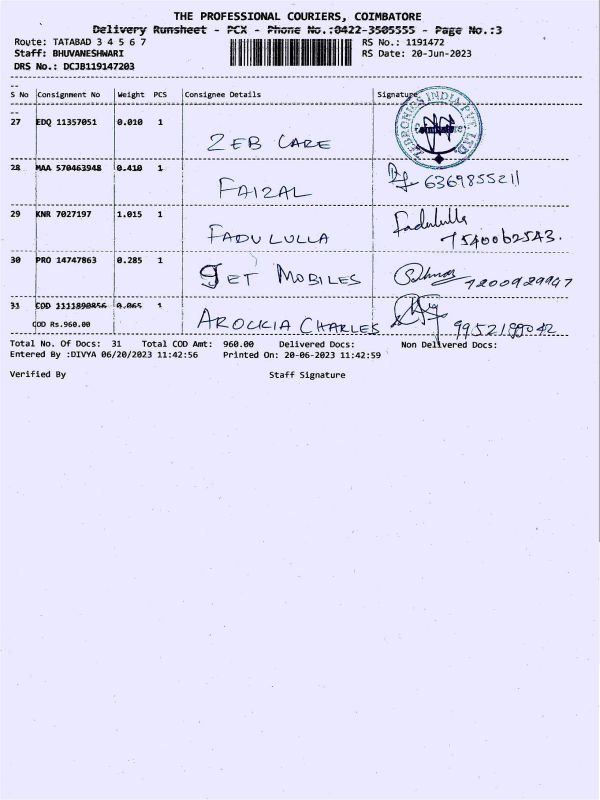 THE PROFESSIONAL COURIERS, COIMBATORE
Delivery Runsheet - PCX - Phone No.:0422-3505555 - Page No.:3
Route: TATABAD 3 4 5 6 7
RS No.: 1191472
Staff: BHUVANESHWARI
RS Date: 20-Jun-2023
DRS No.: DCJB119147203
S No Consignment No Weight PCS Consignee Details Signature
27 EDQ 11357051 0.010 1 ZEB CARE
ZEBRONICS INDIA PVT. LTD.
28 MAA 570463948 0.410 1 FAIZAL 6369855211
29 KNR 7027197 1.015 1 FADULULLA Fadululla 7540062543.
30 PRO 14747863 0.285 1 GET MOBILES 7200929947
31 COD 1111890856 0.065 1 AROCKIA CHARLES
COD Rs.960.00
Total No. Of Docs: 31 Total COD Amt: 960.00 Delivered Docs: Non Delivered Docs:
Entered By :DIVYA 06/20/2023 11:42:56 Printed On: 20-06-2023 11:42:59
Verified By Staff Signature